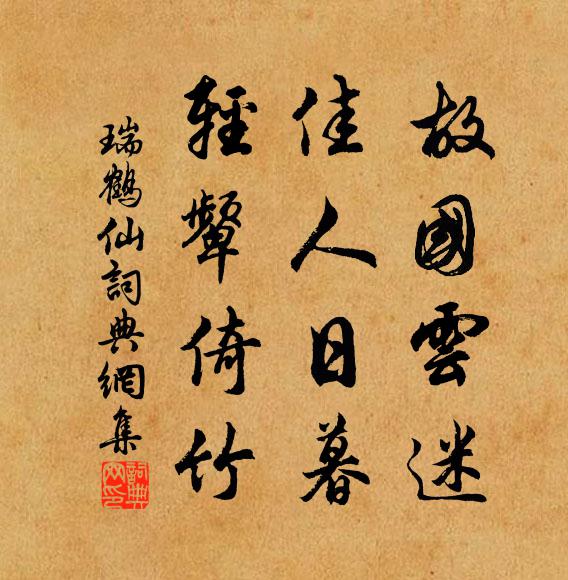 故國雲迷
佳人日暮
輕顰倚竹
瑞鶴仙詞典網集
詞典
网印